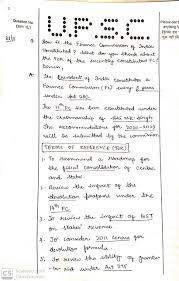 Question No.
U.P.S.C.
Q. How is the Finance Commission of India
constituted? What do you think about
the TOR of the recently constituted FC?
A. The President of India constitutes a
Finance Commission (FC) every 5 years
under Art 280.
The 15th FC has been constituted under
the chairmanship of Shri NK Singh.
The recommendations for 2020-2025
will be submitted by the commission.
TERMS OF REFERENCE (TOR)
1. To recommend a roadmap for
the fiscal consolidation of centre
and state.
- Review the impact of the
devolution factors under the
14th FC.
3. To review the impact of GST
on states' revenue
4. To consider 2011 Census for
devolution formula
5. To review the ability of grants-
in aid under Art 275
CS